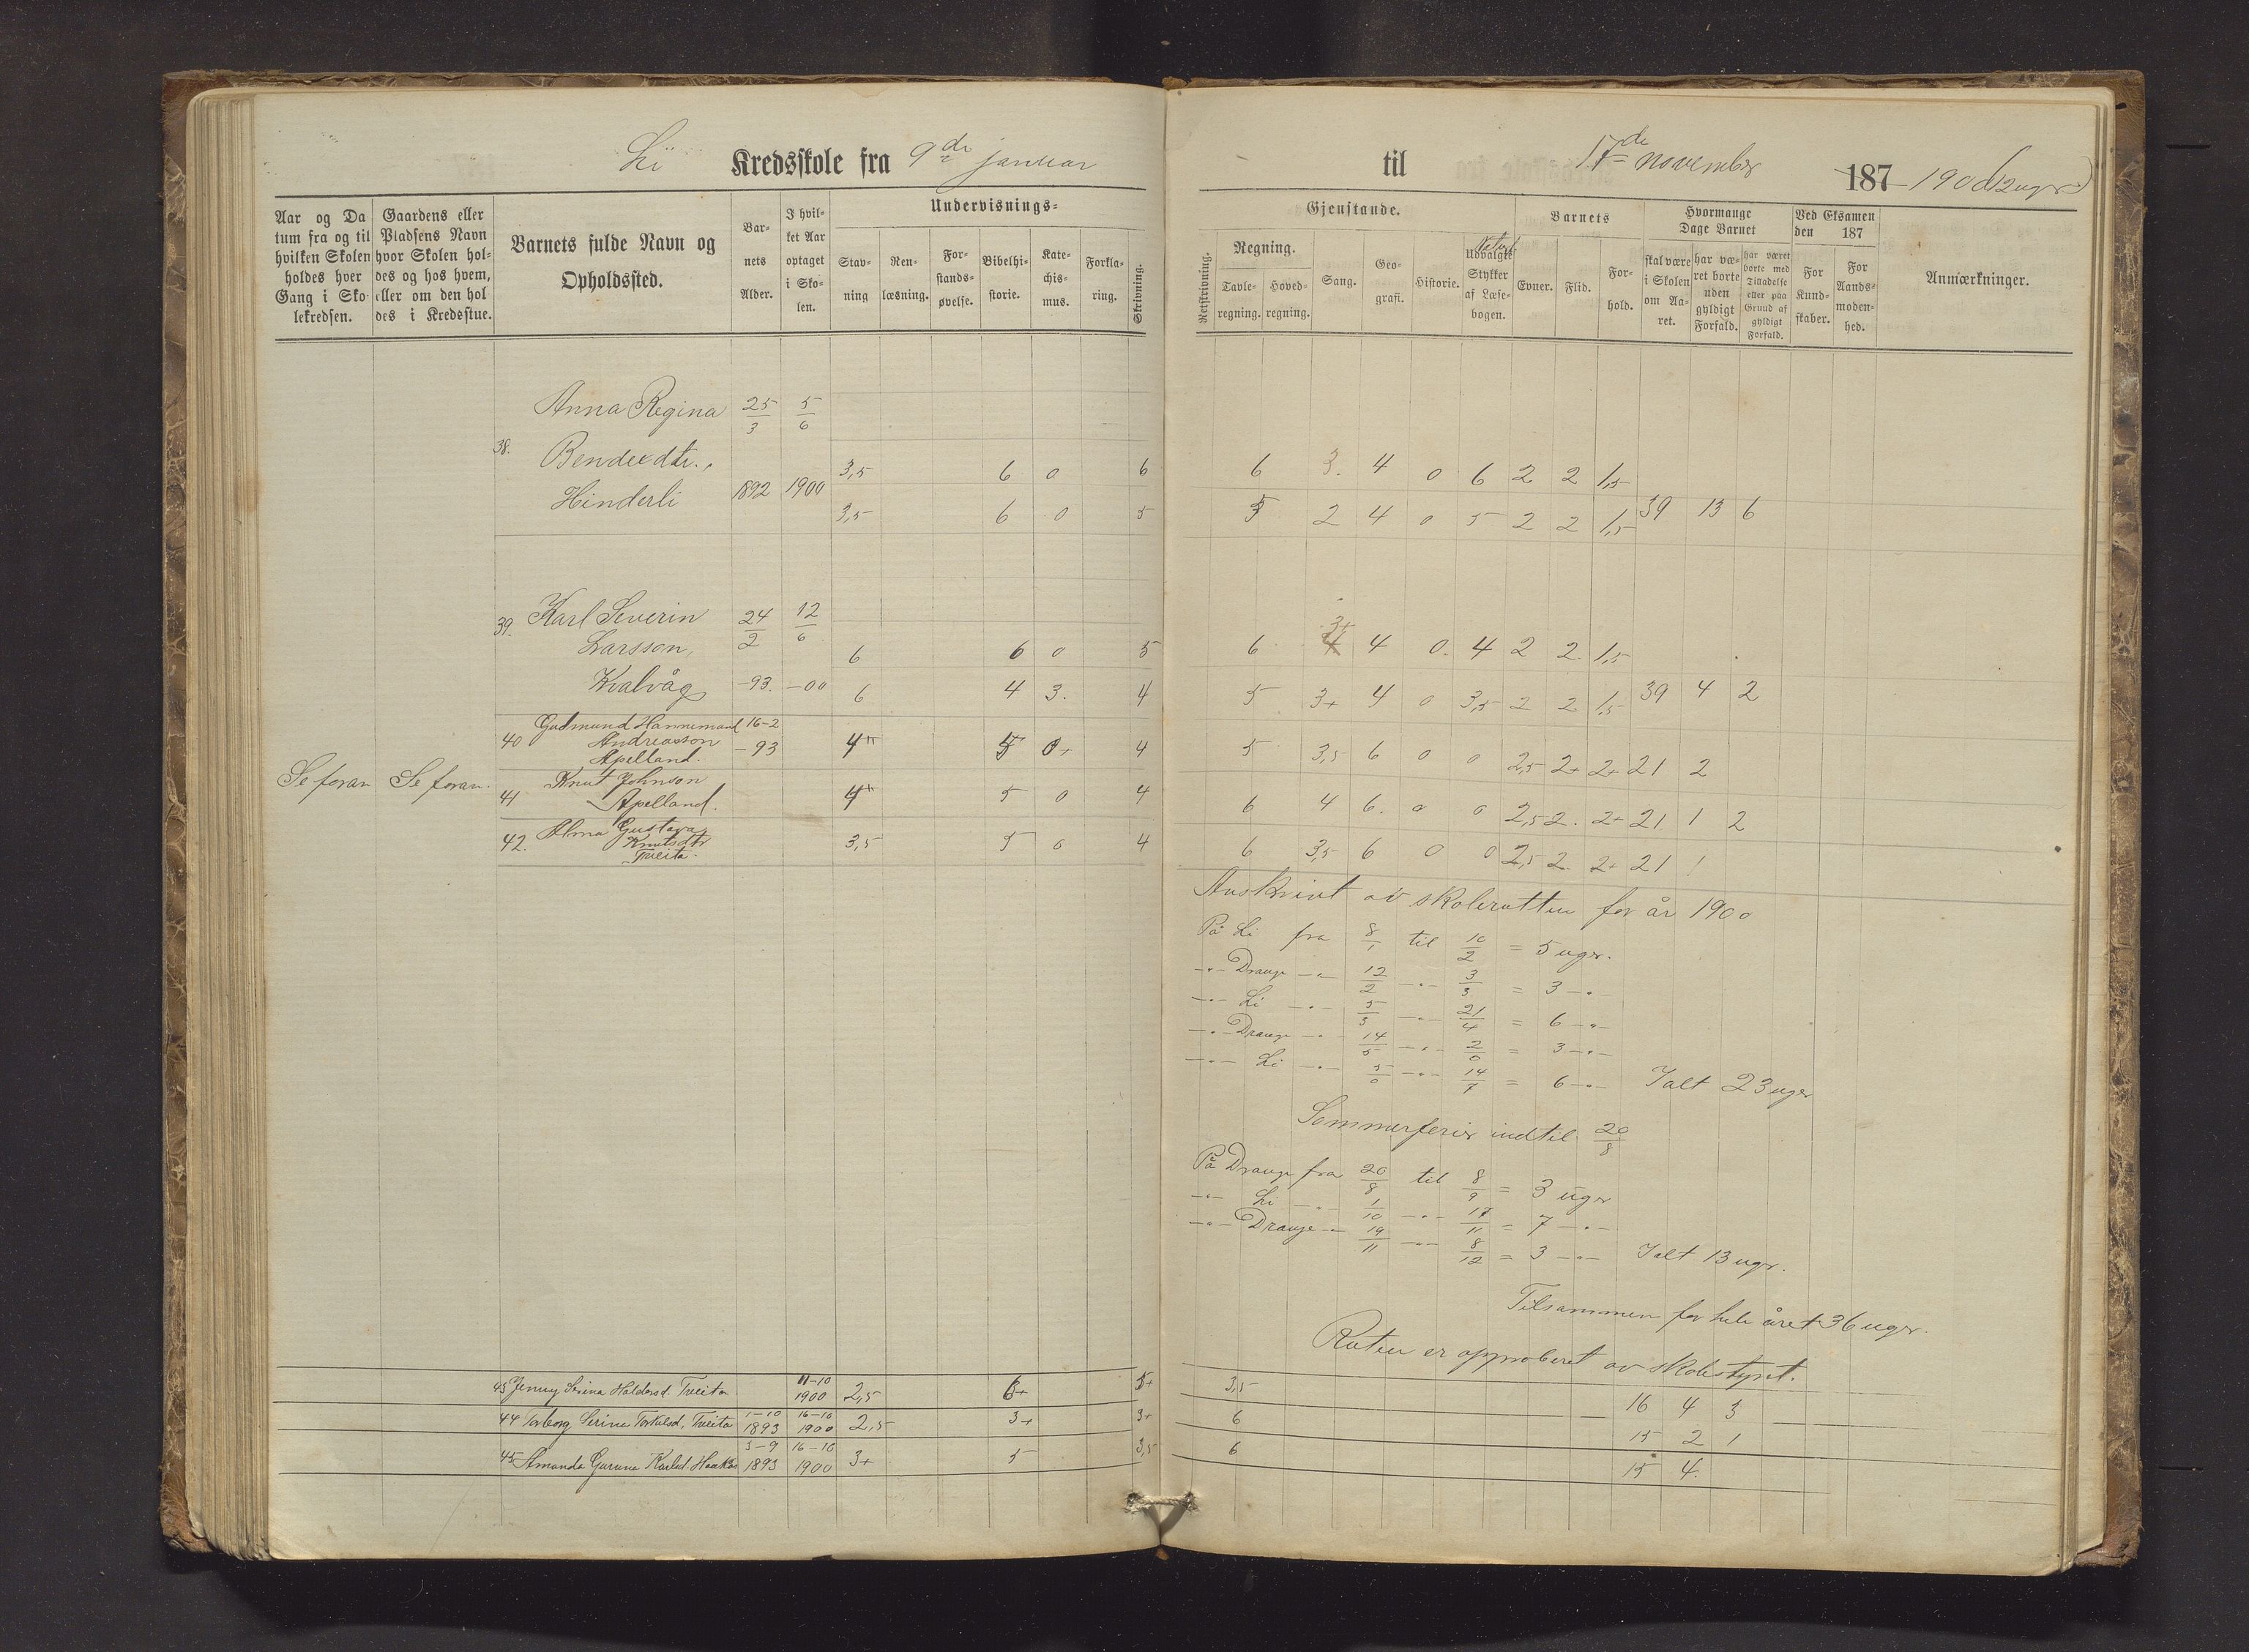 Li Kredsskole fra 9de januar
Aar og Da
tum fra og til
hvilken Skolen
holdes hver
Gang i Sko-
lekredsen.
Gaardens eller
Pladsens Navn
hvor Skolen hol-
des og hos hvem,
eller om den hol
des i Kredsstue.
Barnets fulde Navn og
Opholdssted.
Bar-
nets
Alder.
I hvil-
ket Aar
optaget
i Sko-
len.
Undervisnings-
Stav-
ning
Ren-
læsning.
For-
stands-
øvelse.
Bibelhi-
storie.
Kate-
chis-
mus.
Forkla-
ring.
Skrivning.
Anna Regina 25/3 5/6
38. Bendexdtr., 3,5 6 0 6
Hinderli 1892 1900
3,5 6 0 5
39. Karl Severin 24/2 12/6
Larsson, 6 6 0 5
Kvalvåg -93. -00 6 4 3. 4
40 Gudmund Hannemand 16-2
Andreasson -93 4" 5 0+ 4
Apelland.
Se foran Se foran.
41 Knut Johnson
Apelland. 4" 5 0 4
42. Alma Gustava
Knutsdtr 3,5 5 0 4
Tveita.
43 Jenny Serina Haldorsd. Tveita 11-10
1900 2,5 6+ 5+
44 Torborg Serine Torkelsd, Tveita 1-10 16-10
1893 1900 2,5 3+ 3+
45 Amanda Gurine Karlsd. 3-9 16-10
1893 1900 3+ 5 3,5
til 17de november 187 1900 (12 uger)
Gjenstande.
Retskrivning.
Regning.
Tavle-
regning.
Hoved-
regning.
Sang.
Geo-
grafi.
Historie.
Udvalgte
Stykker
af Læse-
bogen.
Barnets
Evner.
Flid.
For-
hold.
Hvormange
Dage Barnet
skal være
i Skolen
om Aa-
ret.
har væ-
ret borte
uden
gyldigt
Forfald.
har været
borte med
Tilladelse
eller paa
Grund af
gyldigt
Forfald.
Ved Eksamen
den 187
For
Kund-
skaber.
For
Aands-
moden-
hed.
Anmærkninger.
6 3. 4 0 6 2 2 1,5
5 2 4 0 5 2 2 1,5 39 13 6
6 3+ 4 0. 4 2 2 1,5
5 3+ 4 0 3,5 2 2 1,5 39 4 2
5 3,5 6 0 0 2,5 2+ 2+ 21 2
6 4 6. 0 0 2,5 2. 2+ 21 1 2
6 3,5 6 0 0 2,5 2. 2+ 21 1
Avskrivt av skoleruten for år 1900
På Li fra 8/1 til 10/2 = 5 uger.
-"- Drange -"- 12/2 -"- 3/3 = 3 -"-
-"- Li -"- 5/3 -"- 21/4 = 6 -"-
-"- Drange -"- 14/5 -"- 2/6 = 3 -"-
-"- Li -"- 5/6 -"- 14/7 = 6 -"- Ialt 23 uger
Sommerferier indtil 20/8
På Drange fra 20/8 til 8/9 = 3 uger
-"- Li -"- 1/10 -"- 17/11 = 7 -"-
-"- Drange -"- 19/11 -"- 8/12 = 3 -"- Ialt 13 uger.
Tilsammen for hele året 36 uger.
Ruten er approberet av skolestyret.
3,5 16 4 3
6 15 2 1
6 15 4.